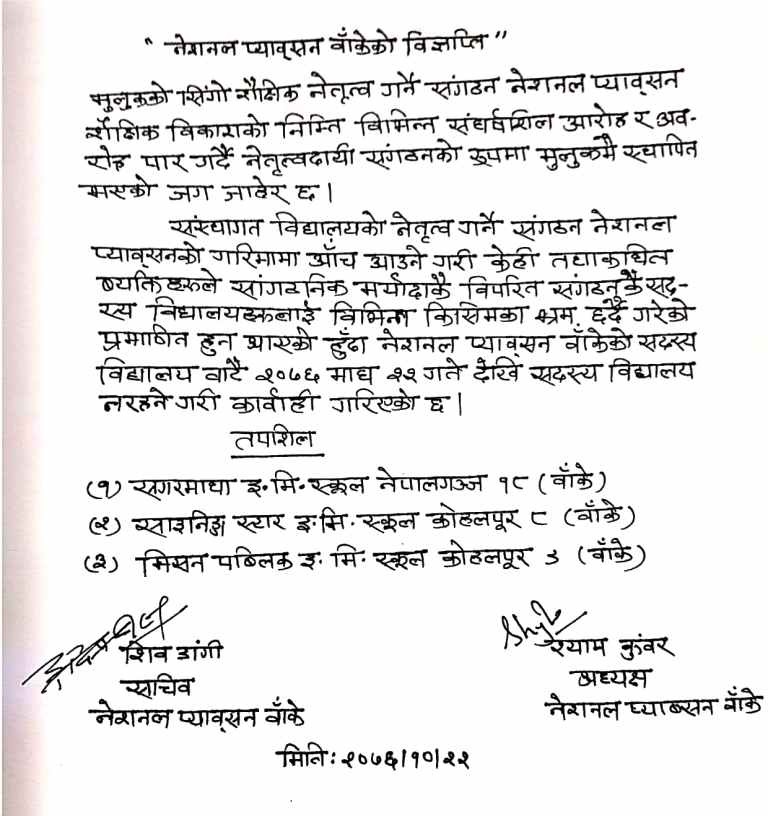 " नेशनल प्याव्सन बाँकेको विज्ञप्ति "
मुलुकको सिंगो शैक्षिक नेतृत्व गर्ने संगठन नेशनल प्याव्सन
शैक्षिक विकाशको निम्ति विभिन्न संघर्षशिल आरोह र अव-
रोह पार गर्दै नेतृत्वदायी संगठनको रुपमा मुलुकमै स्थापित
भएको जग जाहेर छ।
संस्थागत विद्यालयको नेतृत्व गर्ने संगठन नेशनल
प्याव्सनको गरिमामा आँच आउने गरी केही तथाकथित
ब्यक्तिहरुले सांगठनिक मर्यादाकै विपरित संगठनकै सद-
स्य विद्यालयहरुलाई विभिन्न किसिमका भ्रम छर्दै गरेको
प्रमाणित हुन आएको हुँदा नेशनल प्याव्सन बाँकेको सदस्य
विद्यालय वाटै २०७६ माघ २२ गते देखि सदस्य विद्यालय
नरहने गरी कार्वाही गरिएको छ।
तपशिल
(१) सगरमाथा इ.मि.स्कूल नेपालगञ्ज १८ (बाँके)
(२) साइनिङ्ग स्टार इ.मि.स्कूल कोहलपूर ८ (बाँके)
(३) मिसन पब्लिक इ.मि.स्कूल कोहलपूर ३ (बाँके)
शिव डांगी
सचिव
नेशनल प्याव्सन बाँके
श्याम कुंवर
अध्यक्ष
नेशनल प्याब्सन बाँके
मिति: २०७६/१०/२२